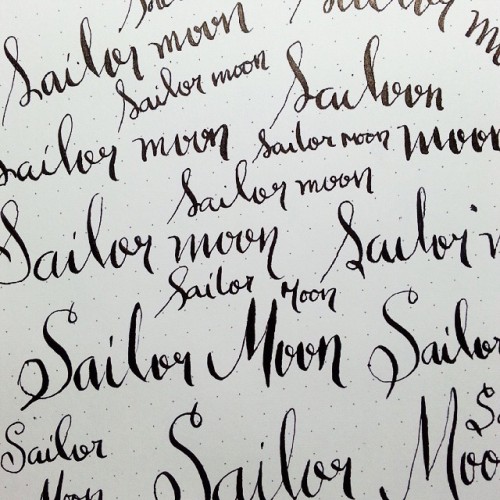 Sailor
Sailor m
Sailor moon
Sailor moon
Sailoon
Sailor moon
Sailor moon moon
Sailor moon
Sailor moon
Sailor m
Sailor Moon
Sailor Moon
Sailor
Sailor Moon
Sailor Moo
S